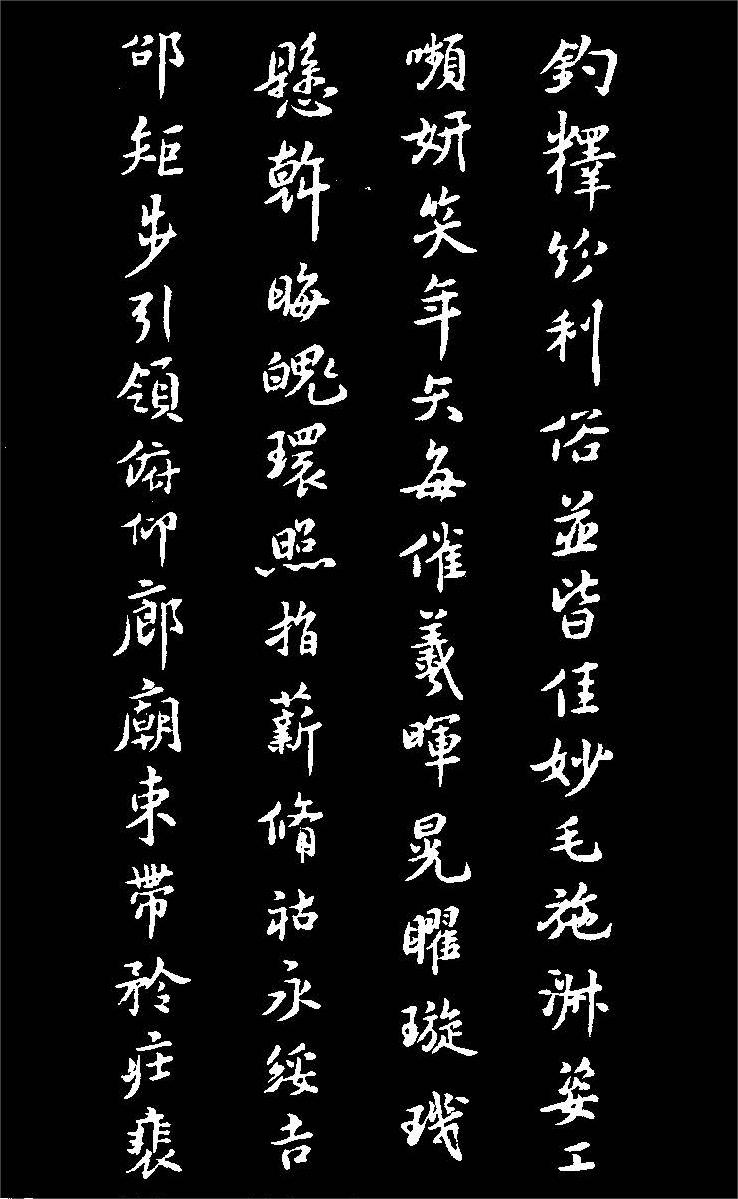 釣釋紛利俗並皆佳妙毛施淑姿工
嚬妍笑年矢每催羲暉晃曜璇璣
懸斡晦魄環照指薪脩祜永綏吉
邵矩步引領俯仰廊廟束帶矜庄裴